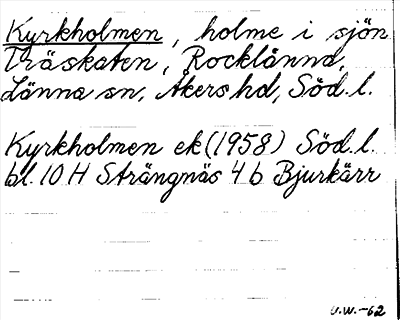 Kyrkholmen, holme i sjön
Träskaten, Rocklänna,
Länna sn, Åkers hd, Söd. l.
Kyrkholmen ek (1958) Söd. l.
bl. 10 H Strängnäs 4 b Bjurkärr
U.W.-62